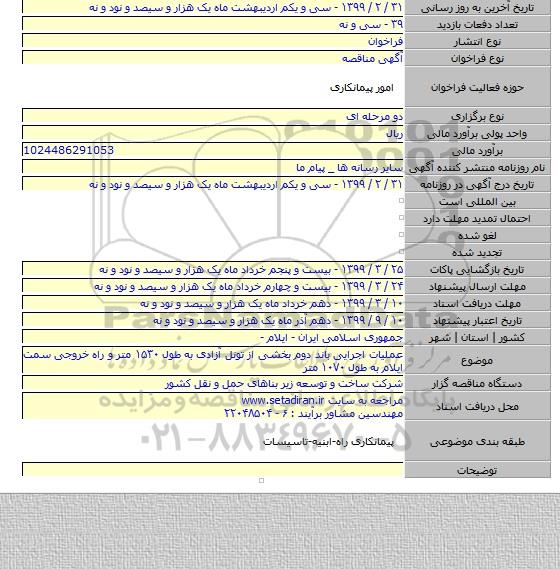 تاریخ آخرین به روز رسانی ۳۱ / ۲ / ۱۳۹۹ - سی و یکم اردیبهشت ماه یک هزار و سیصد و نود و نه
تعداد دفعات بازدید ۳۹ - سی و نه
نوع انتشار فراخوان
نوع فراخوان آگهی مناقصه
حوزه فعالیت فراخوان امور پیمانکاری
نوع برگزاری دو مرحله ای
واحد پولی برآورد مالی ریال
برآورد مالی 1024486291053
نام روزنامه منتشر کننده آگهی سایر رسانه ها _ پیام ما
تاریخ درج آگهی در روزنامه ۳۱ / ۲ / ۱۳۹۹ - سی و یکم اردیبهشت ماه یک هزار و سیصد و نود و نه
بین المللی است
احتمال تمدید مهلت دارد
لغو شده
تجدید شده
تاریخ بازگشایی پاکات ۲۵ / ۳ / ۱۳۹۹ - بیست و پنجم خرداد ماه یک هزار و سیصد و نود و نه
مهلت ارسال پیشنهاد ۲۴ / ۳ / ۱۳۹۹ - بیست و چهارم خرداد ماه یک هزار و سیصد و نود و نه
مهلت دریافت اسناد ۱۰ / ۳ / ۱۳۹۹ - دهم خرداد ماه یک هزار و سیصد و نود و نه
تاریخ اعتبار پیشنهاد ۱۰ / ۹ / ۱۳۹۹ - دهم آذر ماه یک هزار و سیصد و نود و نه
کشور | استان | شهر جمهوری اسلامی ایران - ایلام -
موضوع عملیات اجرایی باند دوم بخشی از تونل آزادی به طول ۱۵۳۰ متر و راه خروجی سمت
ایلام به طول ۱۰۷۰ متر
دستگاه مناقصه گزار شرکت ساخت و توسعه زیر بناهای حمل و نقل کشور
محل دریافت اسناد مراجعه به سایت www.setadiran.ir
مهندسین مشاور برآیند : ۶ - ۲۲۰۴۸۵۰۴
طبقه بندی موضوعی پیمانکاری راه-ابنیه-تاسیسات
توضیحات
۰۲۱-۸۸۳۴۹۶۷۰-۵